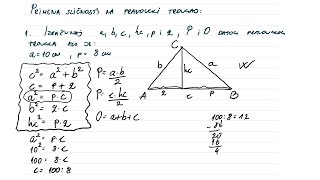 PRIMENA SLIČNOSTI NA PRAVOUGLI TROUGAO:
1. Izračunaj a, b, c, hc, p i q, P i O datog pravouglog
trougla ako je:
a = 10 cm, p = 8 cm
c² = a² + b²
c = p + q
a² = p · c
b² = q · c
hc² = p · q
P = a·b
2
P = c·hc
2
O = a+b+c
C
b
hc
a
A
q
c
p
B
a² = p · c
10² = 8 · c
100 = 8 · c
c = 100 : 8
100 : 8 = 12
20
16
4